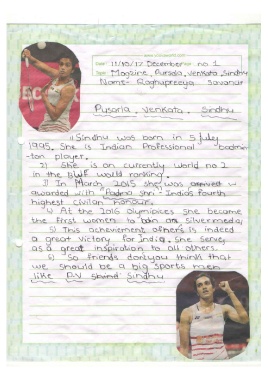 11/10/17 December no 1
Magzine, Pursala, Venkata, Sindhu
Name - Raghupreeya Savanur
Pusarla, Venkata, Sindhu
1) Sindhu was born in 5 july
1995. She is Indian Professional badmin
-ton player.
2) She is on currently world no 2
in the BWF would ranking.
3) In March 2015 she was
awarded with Padma shri India's fourth
highest civilian honour.
4) At the 2016 olympices she became
the first women to silver medal,
5) This achievement of hers is indeed
a great victory for India. She serve,
as a great inspiration to all others.
6) So friends don't you think that
we should be a big sports men
like P.V Sindhu